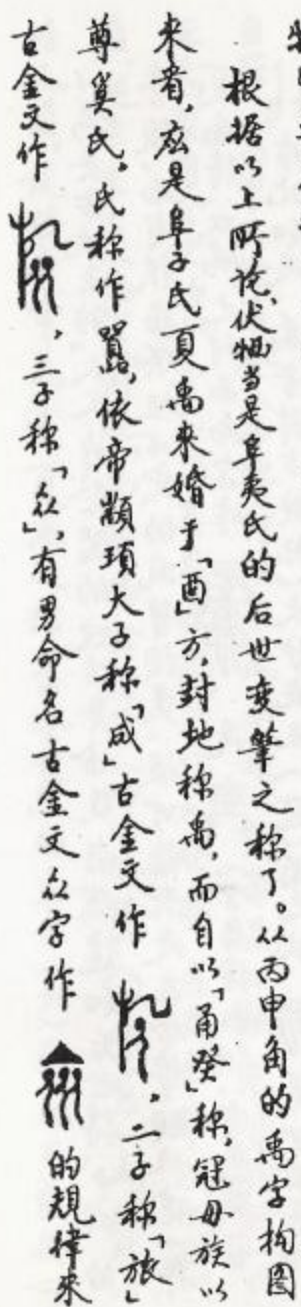 根据以上所论,伏牺当是阜夷氏的后世变笔之称了。从丙申角的禹字构图
来看,应是阜子氏夏禹来婚于「酉」方,封地称禹,而自以「甬癸」称,冠母族以
尊其氏。氏称作嚣,依帝颛顼大子称「成」古金文作,二子称「旅」
古金文作,三子称「众」,有男命名古金文众字作的规律来